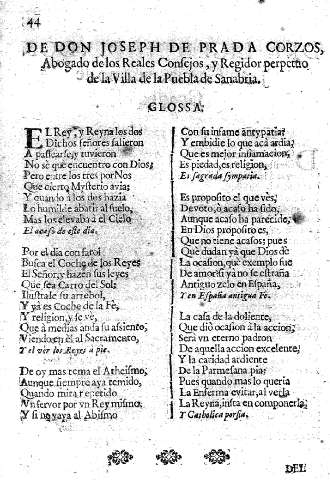 44
DE DON JOSEPH DE PRADA CORZOS,
Abogado de los Reales Consejos, y Regidor perpetuo
de la Villa de la Puebla de Sanabria.
GLOSSA.
EL Rey, y Reyna los dos
Dichos señores salieron
A passearse, y tuvieron
No sè que encuentro con Dios;
Pero entre los tres por Nos
Que cierto Mysterio avia;
Y quando à los dos hazia
Lo humilde abatir al suelo,
Mas los elevaba à el Cielo
El acaso de este dia.
Por el dia con farol
Busca el Coche de los Reyes
El Señor, y hazen sus leyes
Que sea Carro del Sol:
Ilustrale su arrebol,
Y yà es Coche de la Fè,
Y religion, y se vè,
Que à medias anda su assiento,
Viendo en èl al Sacramento,
Y el ver los Reyes à pie.
De oy mas tema el Atheismo,
Aunque siempre aya temido,
Quando mira repetido
Vn fervor por vn Rey mismo,
Y si no vaya al Abismo
Con su infame antypatia;
Y embidie lo que acà ardia;
Que es mejor inflamacion,
Es piedad, es religion,
Es sagrada sympatia.
Es proposito el que vès,
Devoto, ò acaso ha sido,
Aunque acaso ha parecido,
En Dios proposito es,
Que no tiene acasos; pues
Què dudan yà que Dios dè
La ocasion, què exemplo fue
De amor si yà no se estraña
Antiguo zelo en España,
Y en España antigua Fè.
La casa de la doliente,
Que diò ocasion à la accion,
Serà vn eterno padron
De aquella accion excelente;
Y la caridad ardiente
De la Parmesana pia;
Pues quando mas lo queria
La Enferma evitar, al verla
La Reyna, insta en componerla,
Y Catholica porfia.
DEL